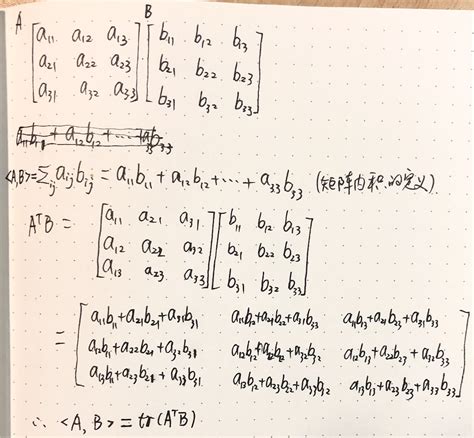 A B
[a₁₁ a₁₂ a₁₃] [b₁₁ b₁₂ b₁₃]
[a₂₁ a₂₂ a₂₃] [b₂₁ b₂₂ b₂₃]
[a₃₁ a₃₂ a₃₃] [b₃₁ b₃₂ b₃₃]
<A,B>=∑ᵢⱼ aᵢⱼbᵢⱼ = a₁₁b₁₁ + a₁₂b₁₂ + ⋯ + a₃₃b₃₃ (矩阵内积的定义)
AᵀB = [a₁₁ a₂₁ a₃₁] [b₁₁ b₁₂ b₁₃]
[a₁₂ a₂₂ a₃₂] [b₂₁ b₂₂ b₂₃]
[a₁₃ a₂₃ a₃₃] [b₃₁ b₃₂ b₃₃]
= [a₁₁b₁₁+a₂₁b₂₁+a₃₁b₃₁ a₁₁b₁₂+a₂₁b₂₂+a₃₁b₃₃ a₁₁b₁₃+a₂₁b₂₃+a₃₁b₃₃]
[a₁₂b₁₁+a₂₂b₂₁+a₃₂b₃₁ a₁₂b₁₂+a₂₂b₂₂+a₃₂b₃₂ a₁₂b₁₃+a₂₂b₂₃+a₃₂b₃₃]
[a₁₃b₁₁+a₂₃b₂₁+a₃₃b₃₁ a₁₃b₁₂+a₂₃b₂₂+a₃₃b₃₂ a₁₃b₁₃+a₂₃b₂₃+a₃₃b₃₃]
∴ <A, B> = tr(AᵀB)